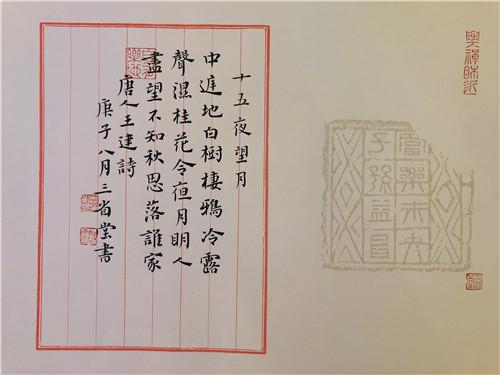 十五夜望月
中庭地白樹棲鴉冷露
聲濕桂花今亱月明人
盡望不知秋思落誰家
唐人王建詩
庚子八月三省堂書
富樂未央
子孫益昌